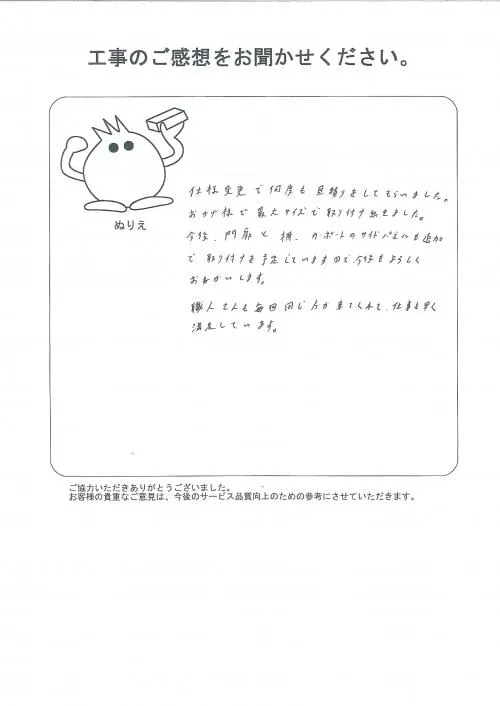 工事のご感想をお聞かせください。
ぬりえ
仕様変更で何度も見積りをしてもらいました。
おかげ様で最大サイズで取り付け出きました。
今後、門扉と柵、カーポートのサイドパネルも追加
で取り付けを予定していますので今後もよろしく
おねがいします。
職人さんも毎回同じ方が来てくれて、仕事も早く
満足しています。
ご協力いただきありがとうございました。
お客様の貴重なご意見は、今後のサービス品質向上のための参考にさせていただきます。